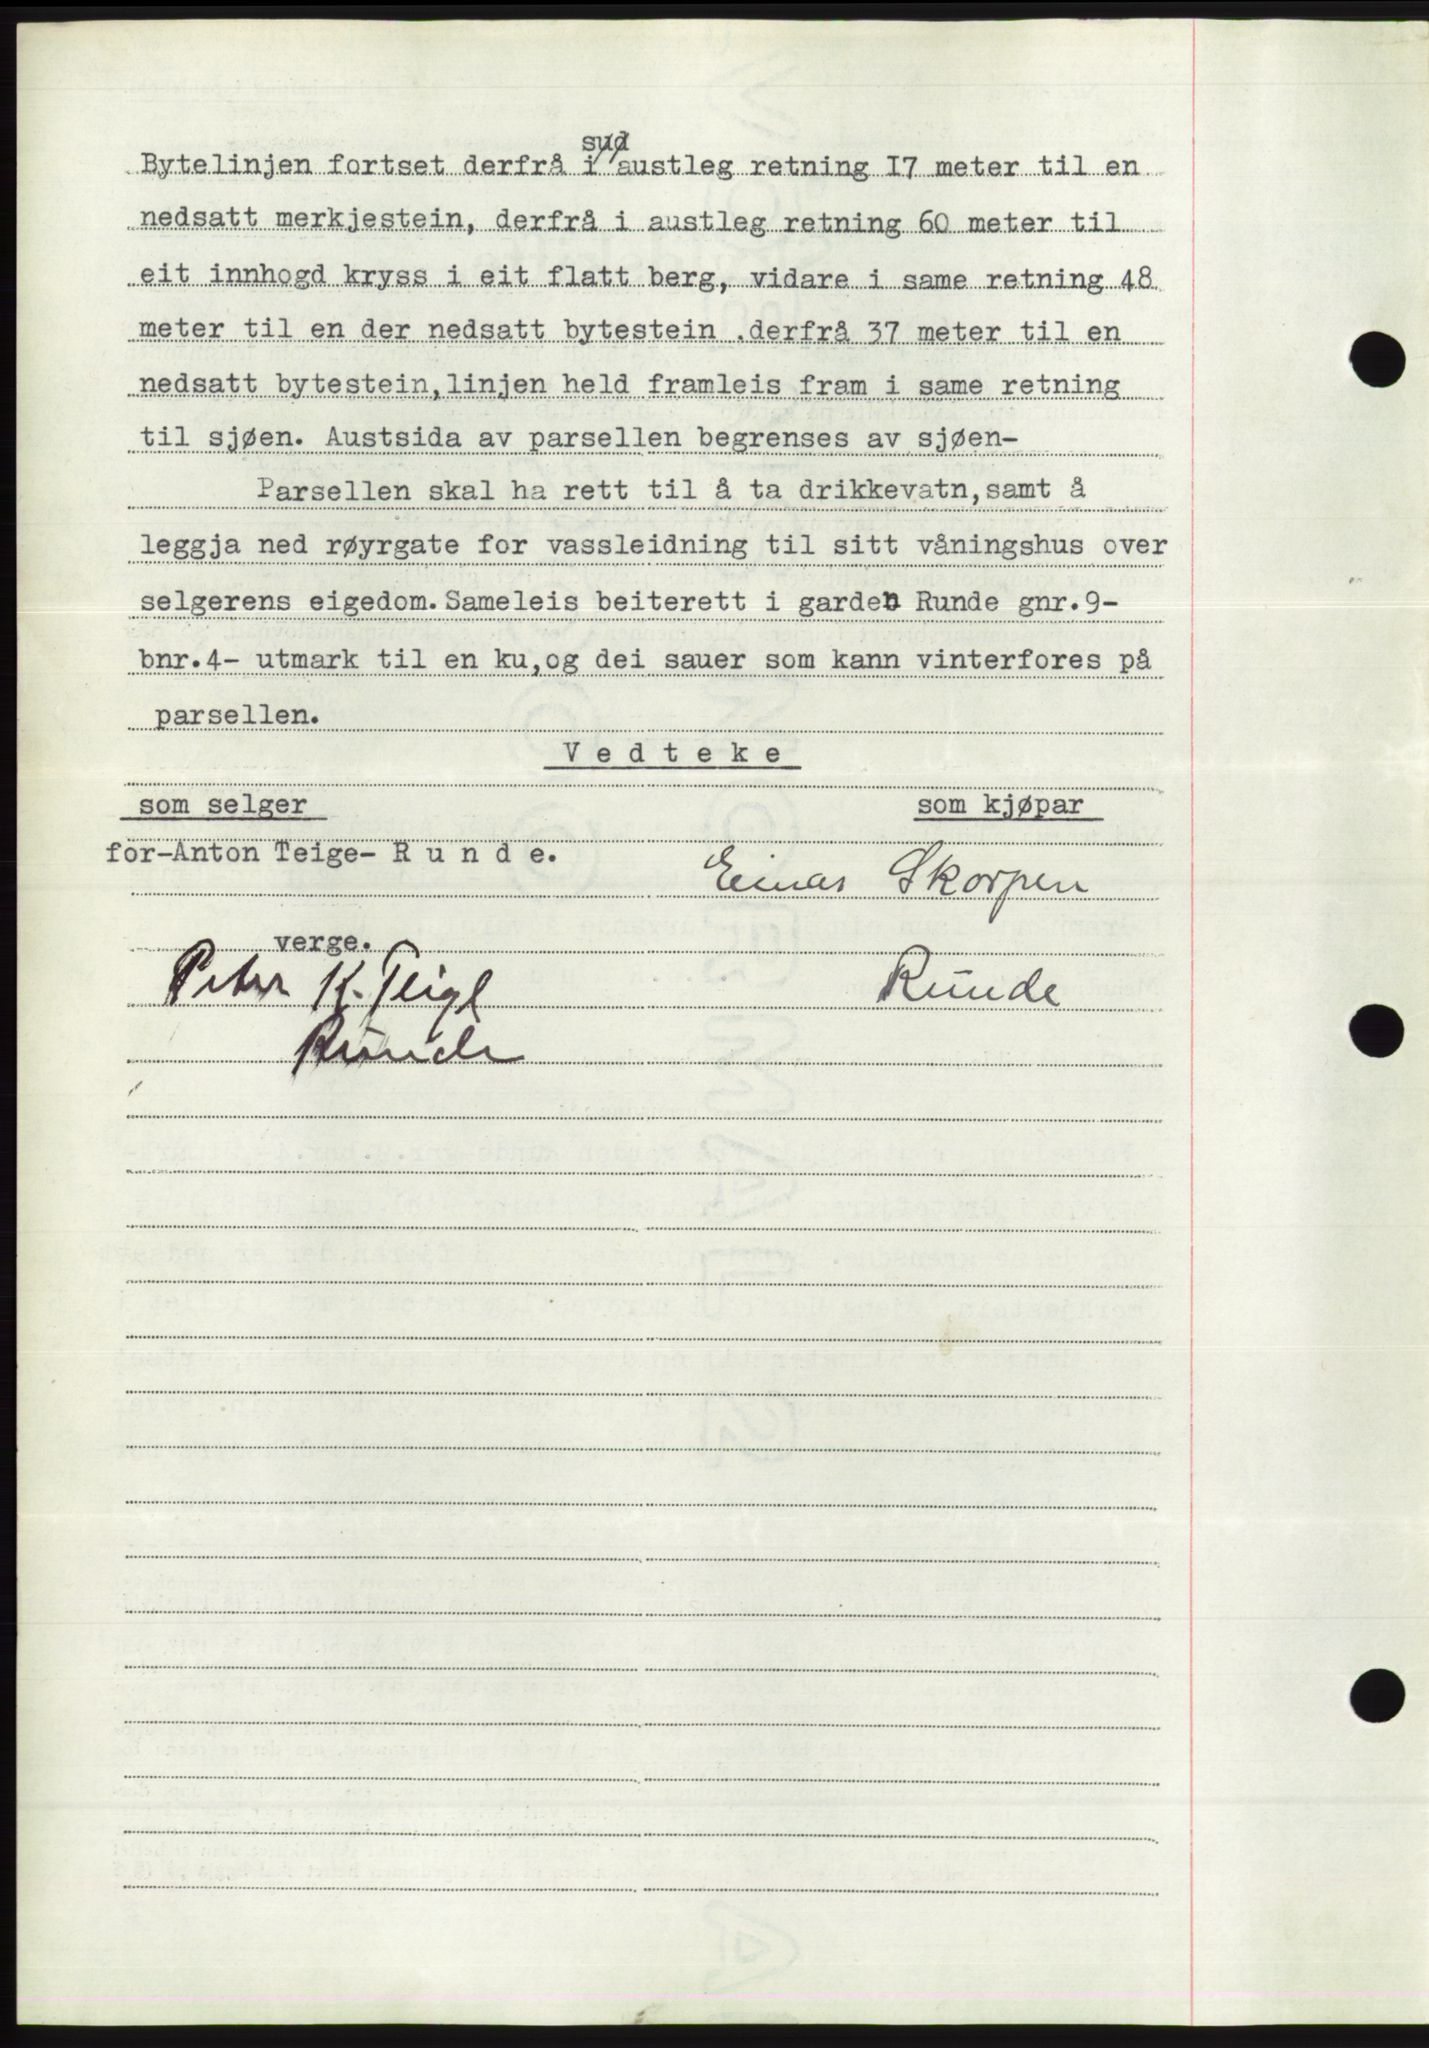 sud
Bytelinjen fortset derfrå i austleg retning I7 meter til en
nedsatt merkjestein, derfrå i austleg retning 60 meter til
eit innhogd kryss i eit flatt berg, vidare i same retning 48
meter til en der nedsatt bytestein .derfrå 37 meter til en
nedsatt bytestein,linjen held framleis fram i same retning
til sjøen. Austsida av parsellen begrenses av sjøen-
Parsellen skal ha rett til å ta drikkevatn,samt å
leggja ned røyrgate for vassleidning til sitt våningshus over
selgerens eigedom.Sameleis beiterett i garden Runde gnr.9-
bnr.4- utmark til en ku,og dei sauer som kann vinterfores på
parsellen.
V e d t e k e
som selger som kjøpar
for-Anton Teige- R u n d e.
Einar Skorpen
verge.
Peter K. Teige Runde
Runde